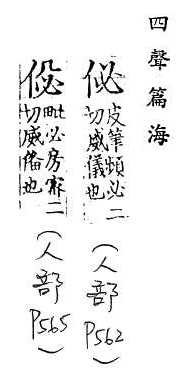 四聲篇海
佖
皮筆頻必二
切威儀也
(人部
P562)
毗必房密二
切威俻也
(人部
P565)